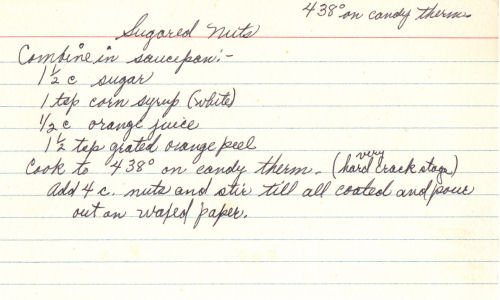 438° on candy therm.
Sugared Nuts
Combine in saucepan:-
1 1/2 c sugar
1 tsp corn syrup (white)
1/2 c orange juice
1 1/2 tsp grated orange peel
Cook to 438° on candy therm. (very hard crack stage)
Add 4 c. nuts and stir till all coated and pour
out on waxed paper.